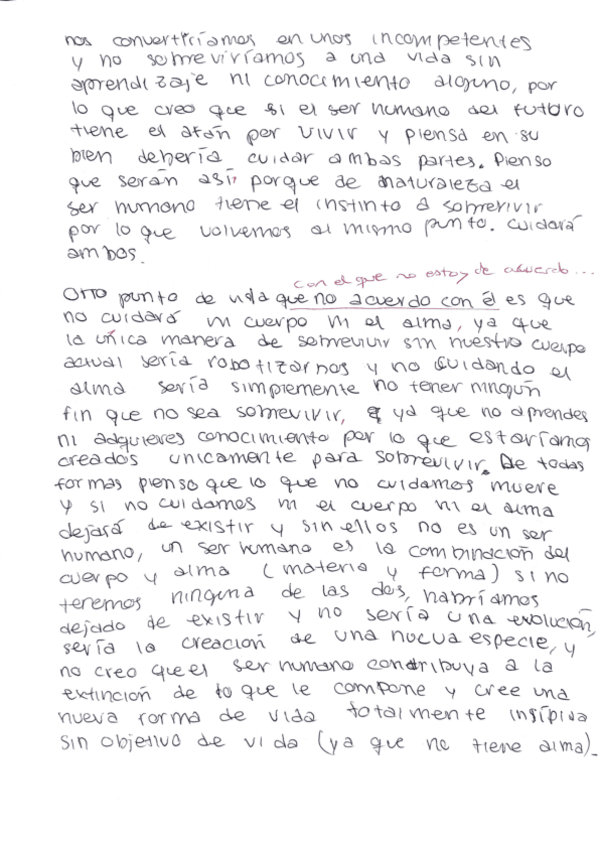 nos convertiríamos en unos incompetentes
y no sobreviviríamos a una vida sin
aprendizaje ni conocimiento alguno, por
lo que creo que si el ser humano del futuro
tiene el afán por vivir y piensa en su
bien debería cuidar ambas partes. Pienso
que serán así porque de naturaleza el
ser humano tiene el instinto a sobrevivir
por lo que volvemos al mismo punto. Cuidará
ambos.
con el que no estoy de acuerdo...
Otro punto de vida que no acuerdo con él es que
no cuidará ni cuerpo ni el alma, ya que
la única manera de sobrevivir sin nuestro cuerpo
actual sería robotizarnos y no cuidando el
alma sería simplemente no tener ningún
fin que no sea sobrevivir, ya que no aprendes
ni adquieres conocimiento por lo que estaríamos
creados unicamente para sobrevivir. De todas
formas pienso que lo que no cuidamos muere
y si no cuidamos ni el cuerpo ni el alma
dejará de existir y sin ellos no es un ser
humano, un ser humano es la combinación del
cuerpo y alma (materia y forma) si no
tenemos ninguna de las dos, habríamos
dejado de existir y no sería una evolución,
sería la creación de una nueva especie, y
no creo que el ser humano contribuya a la
extinción de lo que le compone y cree una
nueva forma de vida totalmente insípida
sin objetivo de vida (ya que no tiene alma).